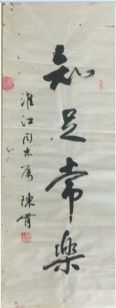 知足常樂
淮江同志属
陳胄